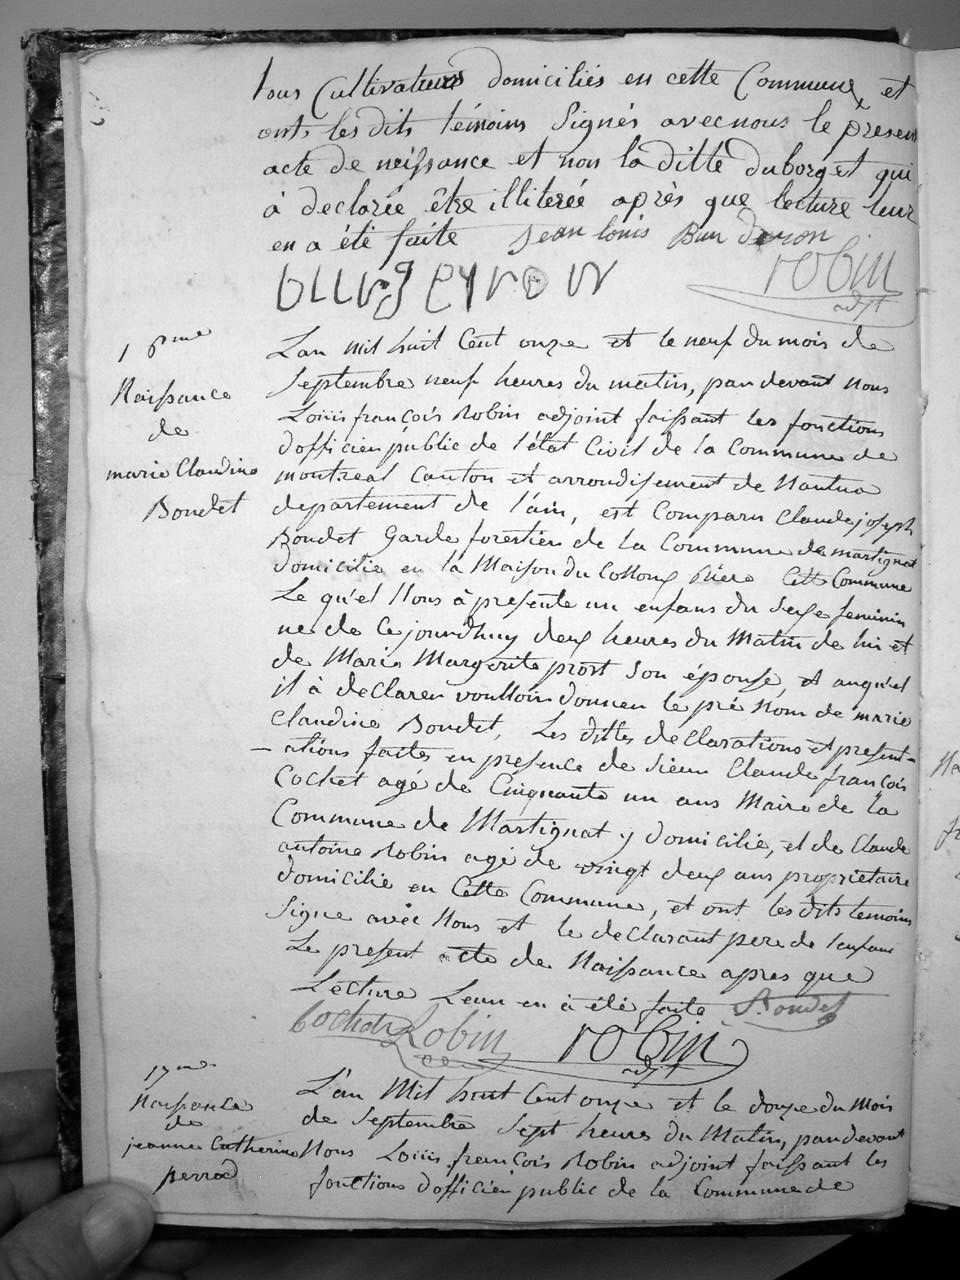 tous Cultivateurs domiciliés en cette Commune et
onts les dits témoins Signés avec nous le présent
acte de neissance et non la ditte duborget qui
à declarée être illiterée après que lecture leur
en a été faite Jean louis
robin
adjt
Naissance
de
marie Claudine
Boudet
L'an Mil huit Cent onze et le neuf du mois de
Septembre neuf heures du matin, par devant Nous
Louis françois Robin adjoint faissant les fonctions
d'officier public de l'état Civil de la Commune de
montreal Canton et arrondissement de Nantua
departement de l'ain, est Comparu Claude joseph
Boudet Garde forestier de la Commune de martignat
domicilié en la Maison du Cette Commune
Le qu'el Nous à presenté un enfans du Sexe feminin
né de Ce jourdhuy deux heures du Matin de lui et
de Marie Margerite prost Son épouse, et auqu'el
il à declarer voulloir donner le pré Nom de marie
Claudine Boudet, Les dittes declarations et present-
-ations faites en presence de Sieur Claude françois
Cochet agé de Cinquante un ans Maire de la
Commune de Martignat y domicilié, et de Claude
antoine Robin agé de vingt deux ans propriétaire
domicilié en Cette Commune, et ont les dits temoins
Signé avec Nous et le declarant pere de l'enfant
Le present acte de Naissance apres que
Lecture Leur en à été faite Boudet
Cochet Robin robin
adjt
17me
Naissance
de
jeanne Catherine
perrod
L'an Mil huit Cent onze et le douze du Mois
de Septembre Sept heures du Matin, par devant
Nous Louis françois Robin adjoint faissant les
fonctions d'officier public de la Commune de